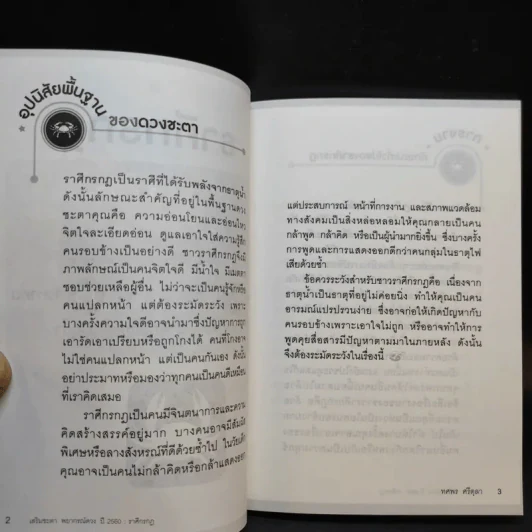 อุปนิสัยพื้นฐาน
ของดวงชะตา
ราศีกรกฎเป็นราศีที่ได้รับพลังจากธาตุน้ำ
ดังนั้นลักษณะสำคัญที่อยู่ในพื้นฐานดวง
ชะตาคุณคือ ความอ่อนโยนและอ่อนไหว
จิตใจละเอียดอ่อน ดูแลเอาใจใส่ความรู้สึก
คนรอบข้างเป็นอย่างดี ชาวราศีกรกฎจึงมี
ภาพลักษณ์เป็นคนจิตใจดี มีน้ำใจ มีเมตตา
ชอบช่วยเหลือผู้อื่น ไม่ว่าจะเป็นคนรู้จักหรือ
คนแปลกหน้า แต่ต้องระมัดระวัง เพราะ
บางครั้งความใจดีอาจนำมาซึ่งปัญหาการถูก
เอารัดเอาเปรียบหรือถูกโกงได้ คนที่โกงอาจ
ไม่ใช่คนแปลกหน้า แต่เป็นคนกันเอง ดังนั้น
อย่าประมาทหรือมองว่าทุกคนเป็นคนดีเหมือน
ที่เราคิดเสมอ
ราศีกรกฎเป็นคนมีจินตนาการและความ
คิดสร้างสรรค์อยู่มาก บางคนอาจมีสัมผัส
พิเศษหรือลางสังหรณ์ที่ดีด้วยซ้ำไป ในวัยเด็ก
คุณอาจเป็นคนไม่กล้าคิดหรือกล้าแสดงออก
2 เสริมชะตา พยากรณ์ดวง ปี 2560 : ราศีกรกฎ
แต่ประสบการณ์ หน้าที่การงาน และสภาพแวดล้อม
ทางสังคมเป็นสิ่งหล่อหลอมให้คุณกลายเป็นคน
กล้าพูด กล้าคิด หรือเป็นผู้นำมากยิ่งขึ้น ซึ่งบางครั้ง
การพูดและการแสดงออกดีกว่าคนกลุ่มในธาตุไฟ
เสียด้วยซ้ำ
ข้อควรระวังสำหรับชาวราศีกรกฎคือ เนื่องจาก
ธาตุน้ำเป็นธาตุที่อยู่ไม่ค่อยนิ่ง ทำให้คุณเป็นคน
อารมณ์แปรปรวนง่าย ซึ่งอาจก่อให้เกิดปัญหากับ
คนรอบข้างเพราะเอาใจไม่ถูก หรืออาจทำให้การ
พูดคุยสื่อสารมีปัญหาตามมาในภายหลัง ดังนั้น
จึงต้องระมัดระวังในเรื่องนี้
ทศพร ศรีตุลา 3